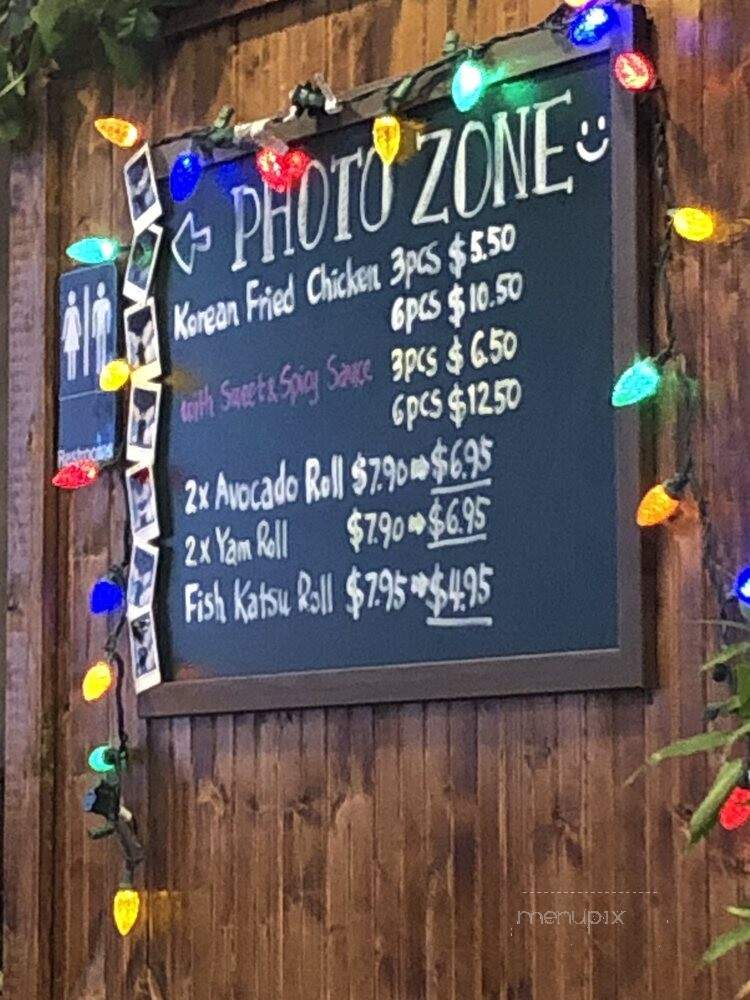 PHOTO ZONE
Korean Fried Chicken 3pcs $5.50
6pcs $10.50
with Sweet & Spicy Sauce 3pcs $6.50
6pcs $12.50
2x Avocado Roll $7.90 ➡ $6.95
2x Yam Roll $7.90 ➡ $6.95
Fish Katsu Roll $7.95 ➡ $4.95
Restrooms
menupix